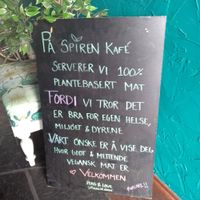 PÅ SPIREN KAFÉ
SERVERER VI 100%
PLANTEBASERT MAT
FORDI VI TROR DET
ER BRA FOR EGEN HELSE,
MILJØET & DYRENE
VÅRT ØNSKE ER Å VISE DEG
HVOR GODT & METTENDE
VEGANSK MAT ER
VELKOMMEN
PEACE & LOVE